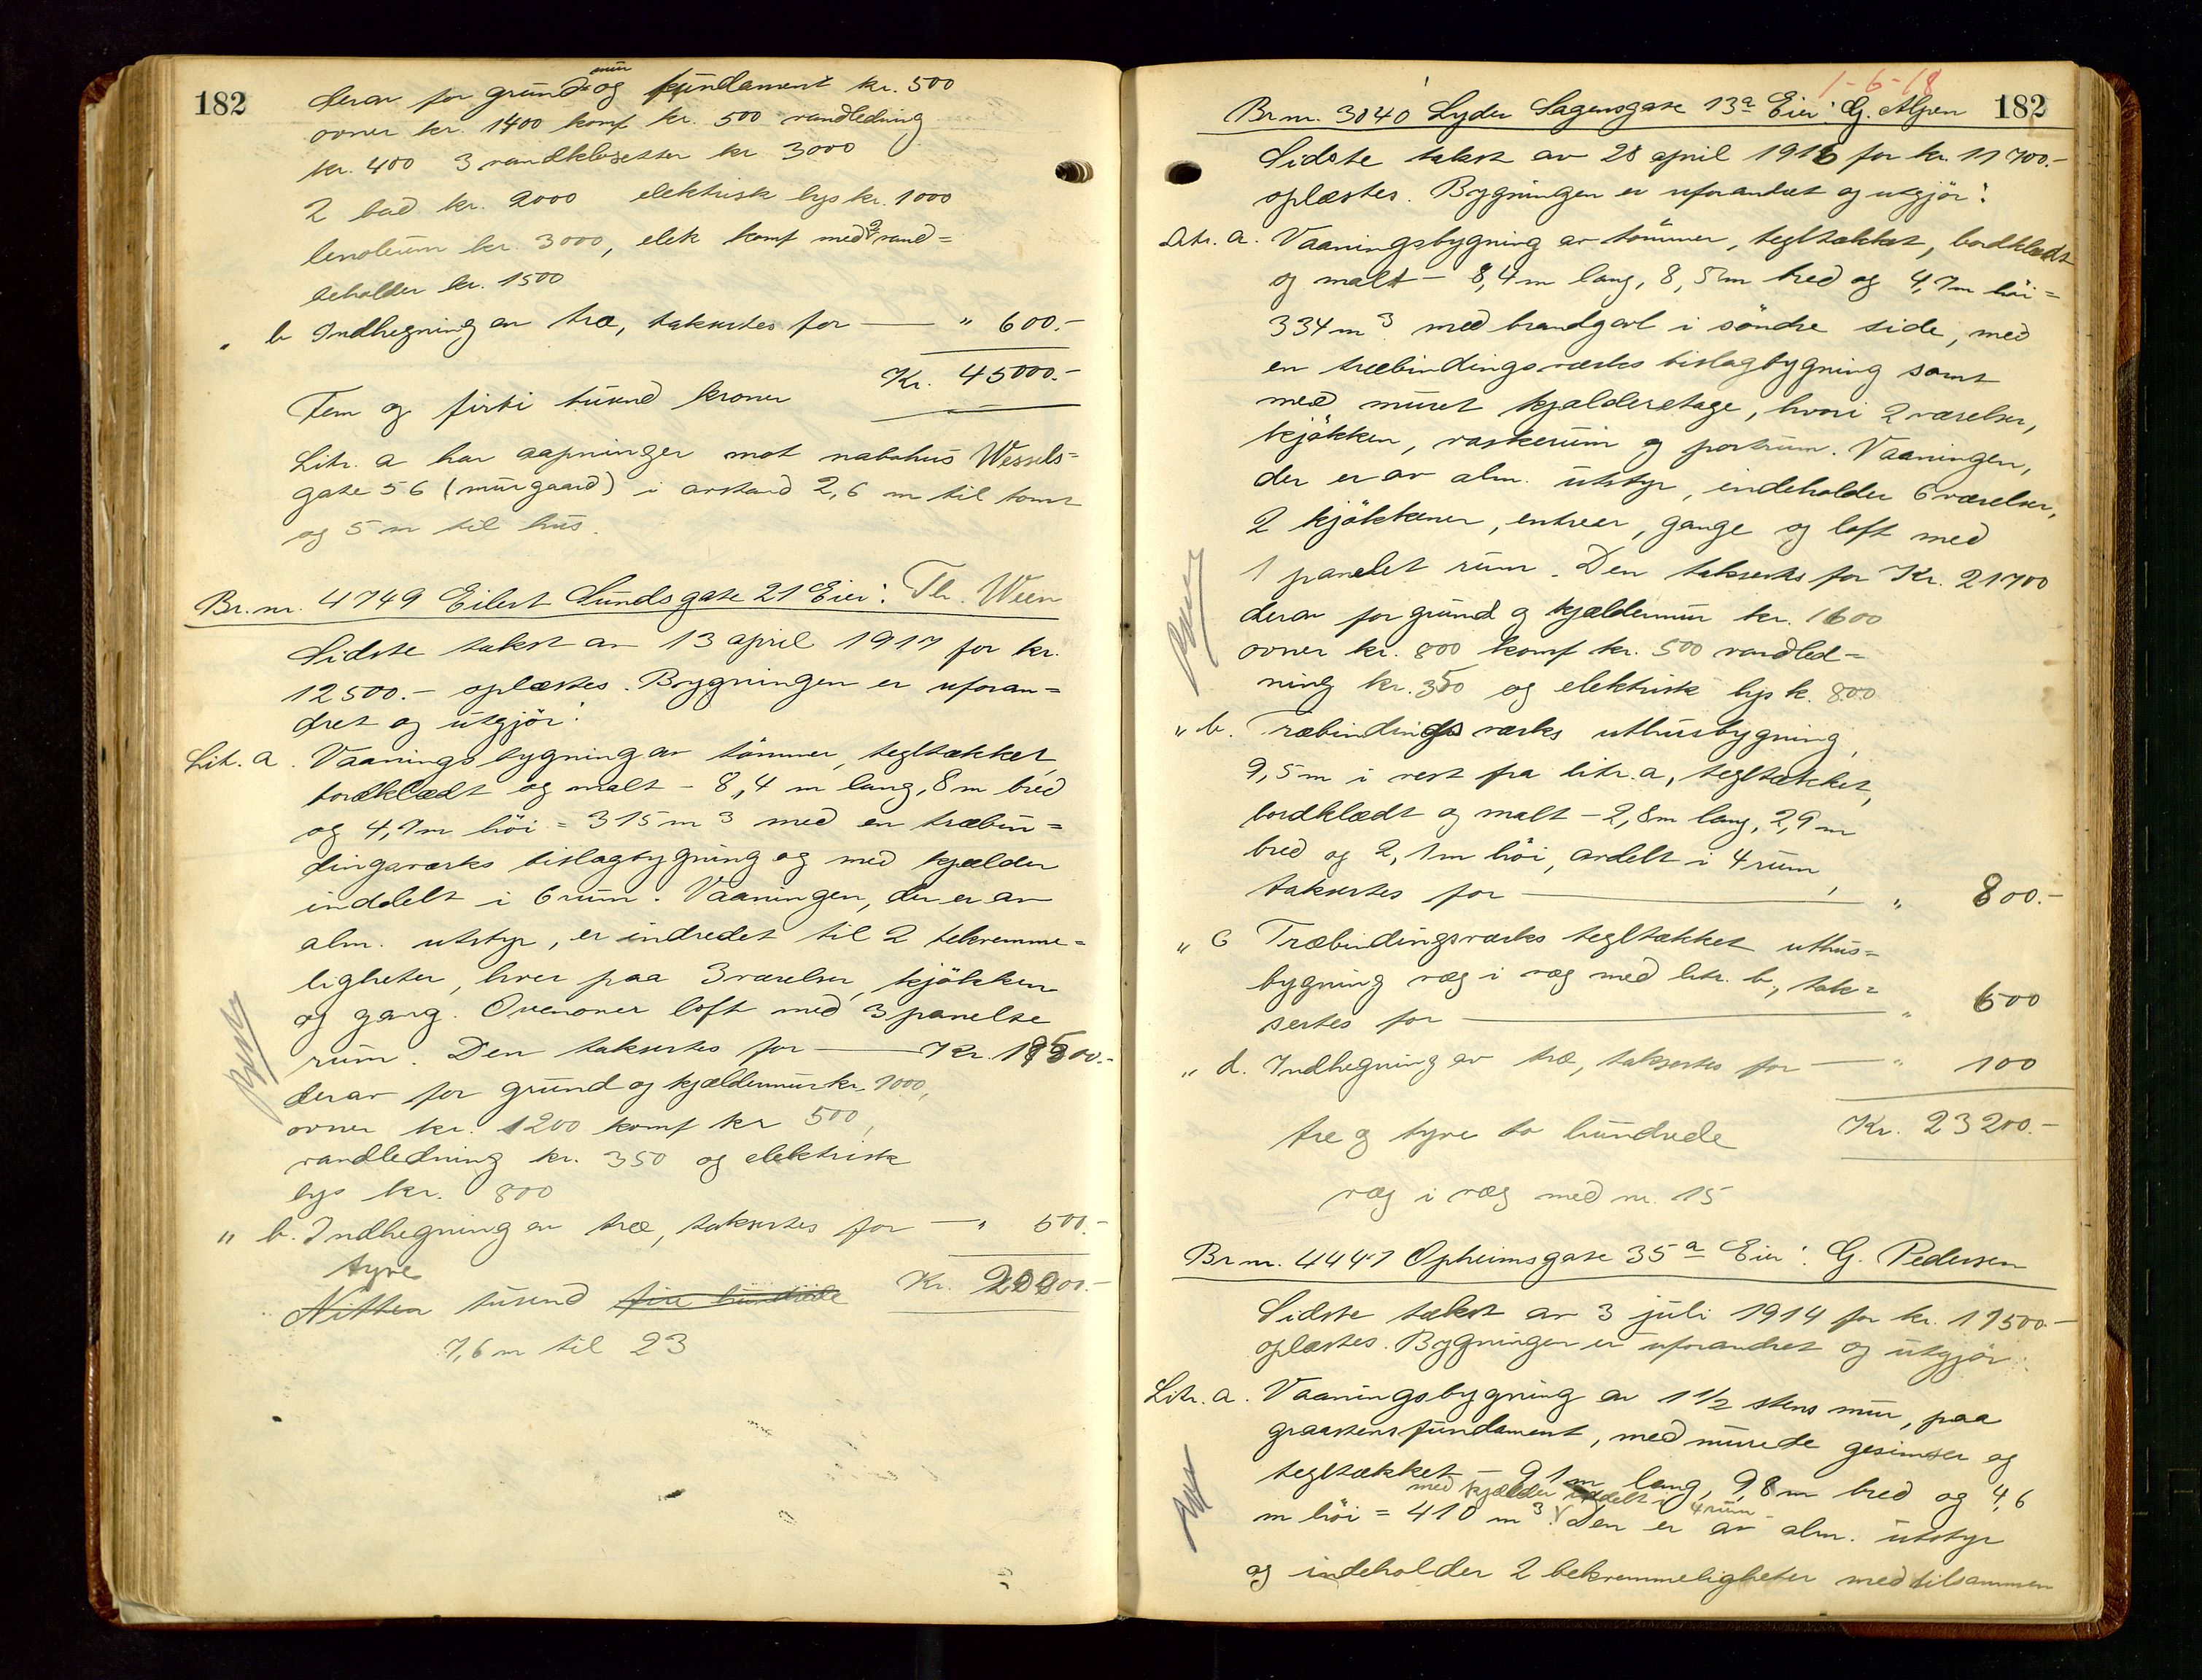 182
mur
derav for grund og fundament kr. 500
ovner kr. 1400 komf kr. 500 vandledning
kr. 400 3 vandklosetter kr 3000
2 bad kr. 2000 elektrisk lys kr. 1000
lenoleum kr. 3000, elek komf med 2 vand=
beholder kr. 1500
" b Indhegning av træ, takseres for — " 600.-
Kr. 45000.-
Fem og førti tusend kroner
Litr. a har aapninger mot nabohus Wessels=
gate 56 (murgaard) i avstand 2,6 m til tomt
og 5 m til hus.
Br. nr. 4749 Eilert Sundsgate 21 Eier: Th. Ween
Sidste takst av 13 april 1917 for kr.
12500.- oplæstes. Bygningen er uforan=
dret og utgjör:
Lit. a. Vaaningsbygning av tömmer, tegltækket,
bordklædt og malt - 8,4 m lang, 8 m bred
og 4,7 m höi = 315 m3 med en træbin=
dingsverks bislagbygning og med kjælder
inddelt i 6 rum. Vaaningen, der er av
alm. utstyr, er indredet til 2 bekvemme=
ligheter, hver paa 3 værelser, kjökken
og gang. Ovenover loft med 3 panelte
rum. Den takseres for — Kr. 19500.-
derav for grund og kjældermur kr. 1000,
ovner kr. 1200 komf kr 500,
vandledning kr. 350 og elektrisk
lys kr. 800
" b. Indhegning av træ, takseres for — " 500.-
tyve
Nitten tusend fire hundrede Kr. 20000.-
7,6 m til 23
1-6-18
Br nr. 3040 Lyder Sagensgate 13a Eier: G. Alfsen 182
Sidste takst av 28 april 1916 for kr. 11700.-
oplæstes. Bygningen er uforandret og utgjör:
Litr. a. Vaaningsbygning av tömmer, tegltækket, bordklædt
og malt - 8,4 m lang, 8,5 m bred og 4,7 m höi =
334 m3 med brandgavl i söndre side, med
en træbindingsverks bislagbygning samt
med muret kjælderetage, hvori 2 værelser,
kjökken, vaskerum og portrum. Vaaningen,
der er av alm. utstyr, indeholder 6 værelser,
2 kjökkener, entreer, gange og loft med
1 panelet rum. Den takseres for Kr. 21700
derav for grund og kjældermur kr. 1600
ovner kr. 800 komf kr. 500 vandled=
ning kr. 350 og elektrisk lys k. 800
" b. Træbindingsverks uthusbygning,
9,5 m i vest fra litr. a, tegltækket,
bordklædt og malt - 2,8 m lang, 2,9 m
bred og 2,1 m höi, avdelt i 4 rum,
takseres for — " 800.-
" c Træbindingsverks tegltækket uthus=
bygning væg i væg med litr. b., tak=
seres for — " 600
" d. Indhegning av træ, takseres for — " 100
Kr. 23200.-
tre og tyve to hundrede
væg i væg med nr. 15
Br nr. 4447 Opheimsgate 35a Eier: G. Pedersen
Sidste takst av 3 juli 1914 for kr. 11500.-
oplæstes. Bygningen er uforandret og utgjör:
Litr. a. Vaaningsbygning av 1 1/2 stens mur, paa
graastensfundament, med murede gesimser og
tegltækket - 9,1 m lang, 9,8 m bred og 4,6
med kjælder inddelt i 4 rum
m höi = 410 m3. Den er av alm. utstyr
og indeholder 2 bekvemmeligheter med tilsammen